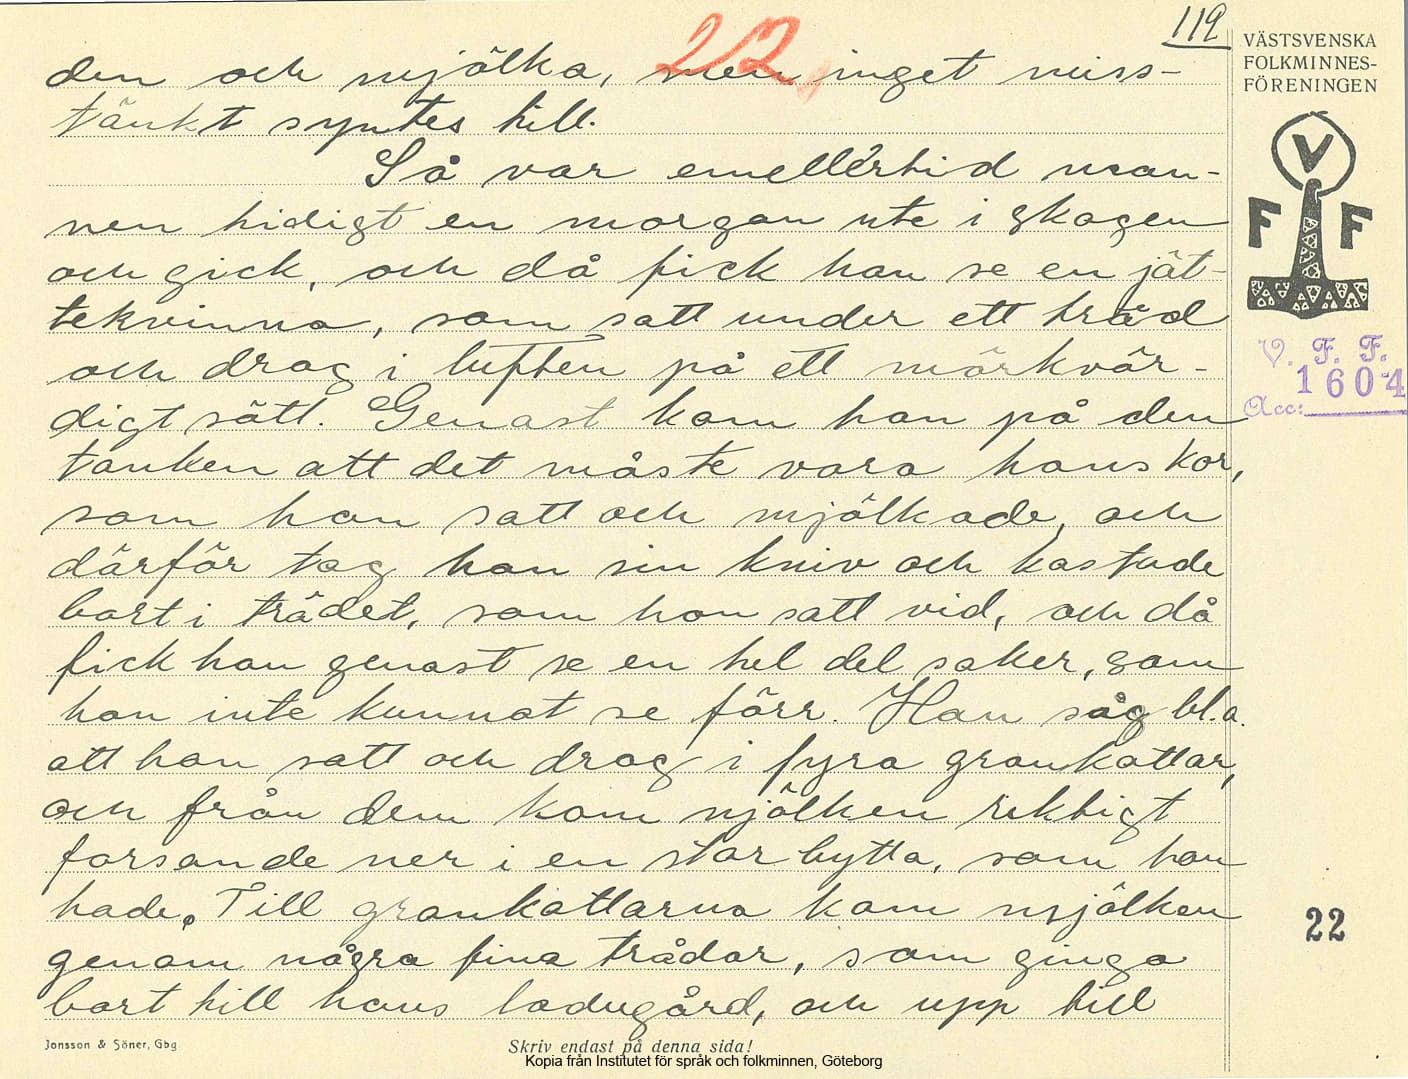 119
212
VÄSTSVENSKA
FOLKMINNES-
FÖRENINGEN
V
F F
V. F. F.
1604
Acc:
22
den och mjölka, men inget miss-
tänkt syntes till.
Så var emellertid man-
nen tidigt en morgon ute i skogen
och gick, och då fick han se en jät-
tekvinna, som satt under ett träd
och drog i luften på ett märkvär-
digt sätt. Genast kom han på den
tanken att det måste vara hans kor,
som hon satt och mjölkade, och
därför tog han sin kniv och kastade
bort i trädet, som hon satt vid, och då
fick han genast se en hel del saker, som
han inte kunnat se förr. Han såg bl.a.
att hon satt och drog i fyra grankottar,
och från dem kom mjölken riktigt
forsande ner i en stor bytta, som hon
hade. Till grankottarna kom mjölken
genom några fina trådar, som gingo
bort till hans ladugård, och upp till
Jonsson & Söner, Gbg
Skriv endast på denna sida!
Kopia från Institutet för språk och folkminnen, Göteborg